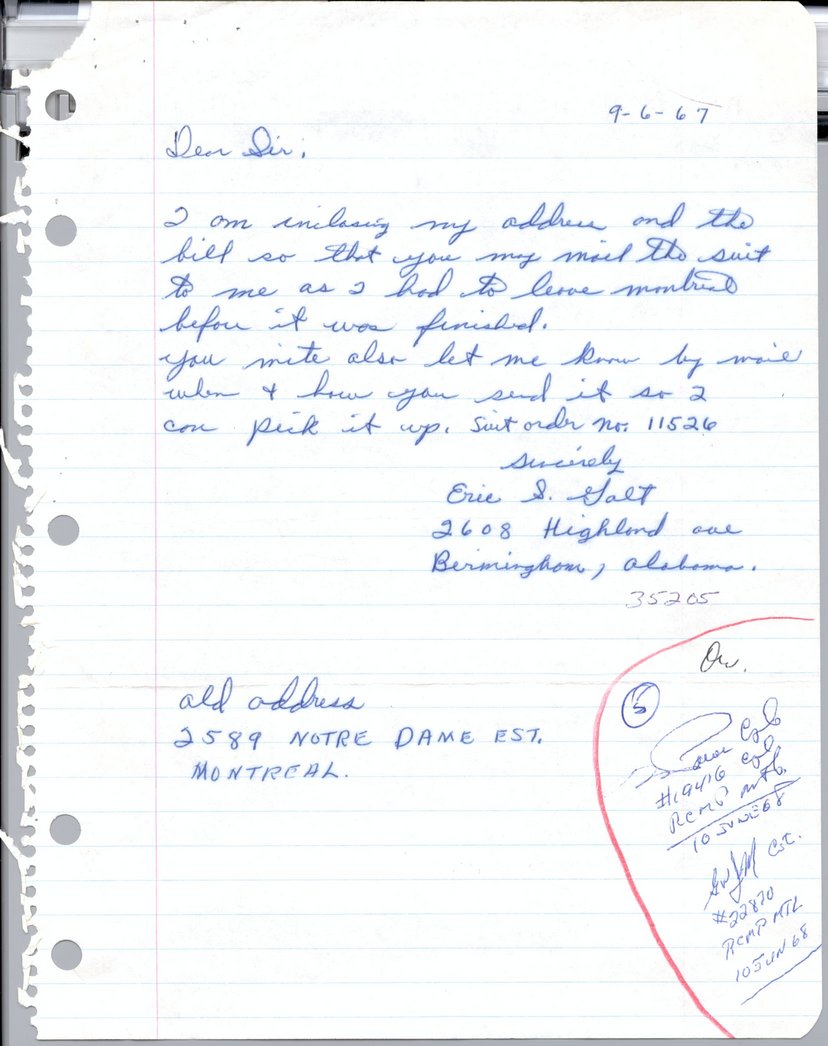 9-6-67
Dear Sir;
I am inclosing my address and the
bill so that you may mail the suit
to me as I had to leave montreal
before it was finished.
you mite also let me know by mail
when & how you send it so I
can pick it up. Suit order no. 11526
Sincerely
Eric S. Galt
2608 Highland ave
Bermingham, alabama.
35205
old address
2589 NOTRE DAME EST.
MONTREAL.
5
#19416 Cpl
RCMP Mtl.
10 JUNE 68
Cst.
#22870
RCMP MTL
10 JUN 68